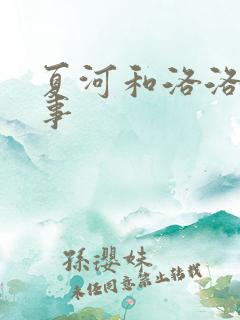 夏河和洛洛
事
孫瓔姝
未经同意禁止转载